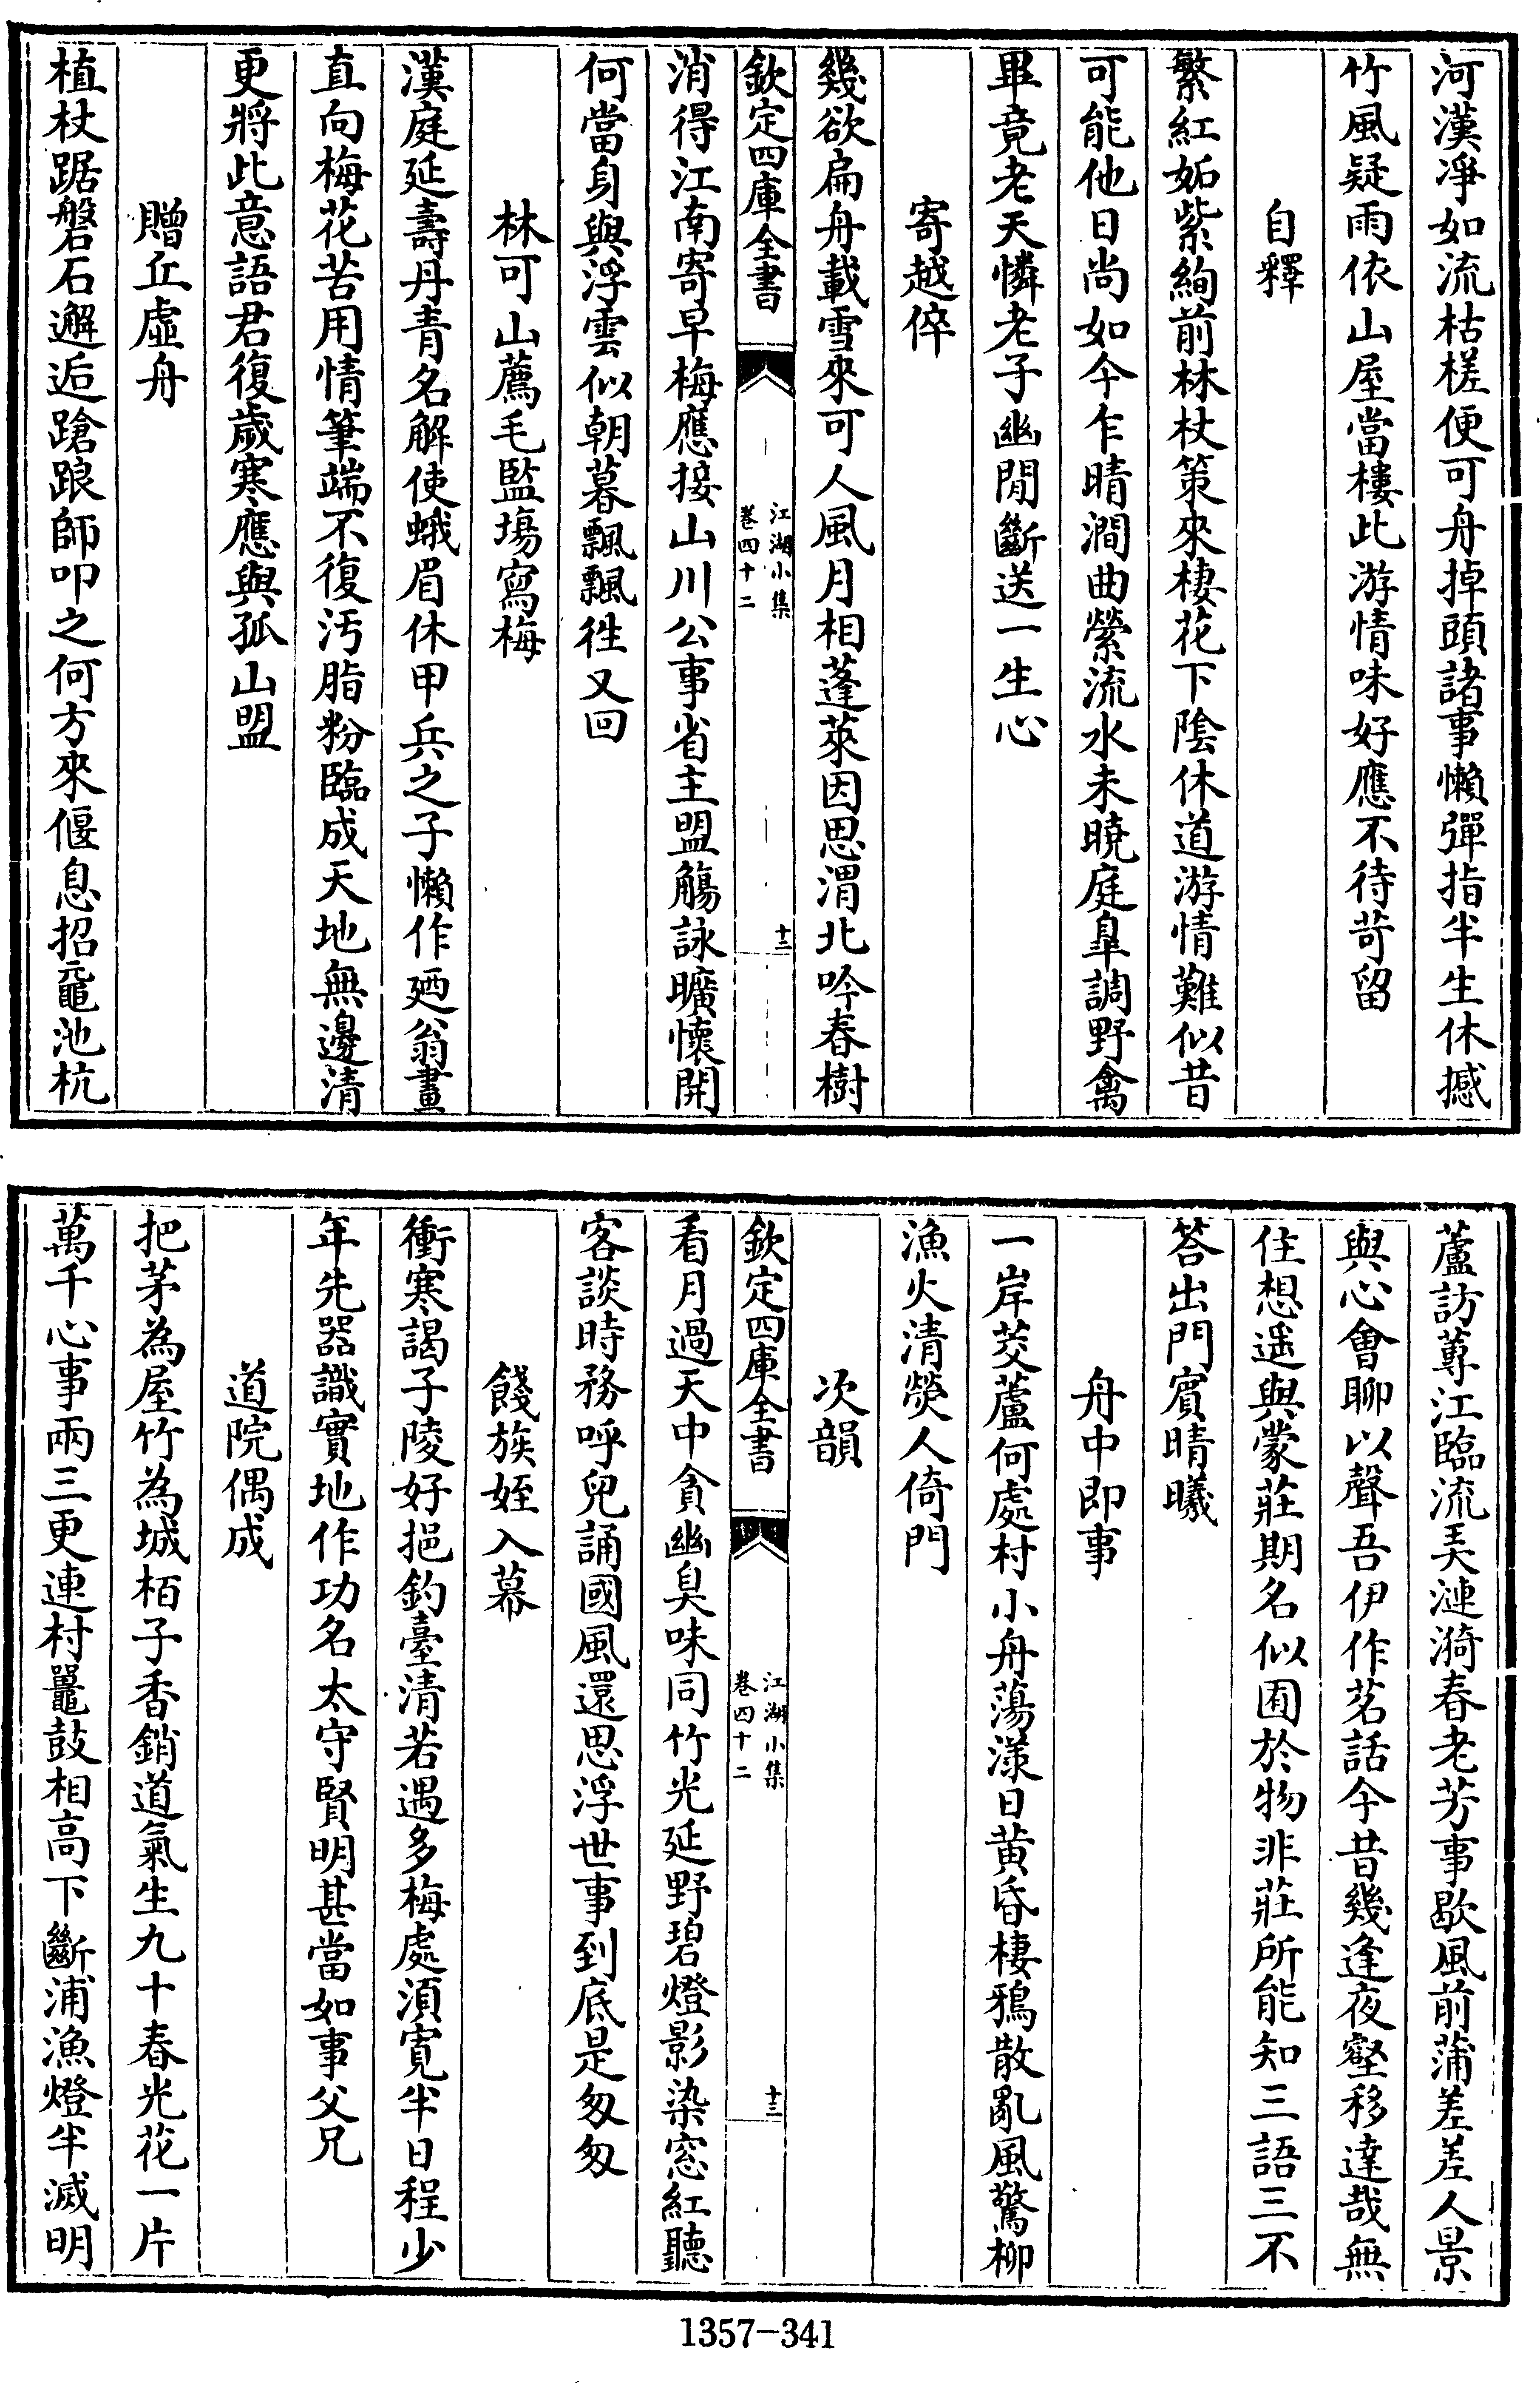 河漢凈如流枯槎便可舟掉頭諸事懶彈指半生休撼
竹風疑雨依山屋當樓此游情味好應不待苛留
自釋
繁紅妬紫絢前林杖策來棲花下陰休道游情難似昔
可能他日尚如今乍晴澗曲縈流水未曉庭臯調野禽
畢竟老天憐老子幽閒斷送一生心
寄越倅
幾欲扁舟載雪來可人風月相蓬萊因思渭北吟春樹
欽定四庫全書
江湖小集
卷四十二
十二
消得江南寄早梅應接山川公事省主盟觴詠曠懷開
何當身與浮雲似朝暮飄飄徃又回
林可山薦毛監塲寫梅
漢庭延壽丹青名解使蛾眉休甲兵之子懶作廼翁畫
直向梅花苦用情筆端不復汚脂粉臨成天地無邊清
更將此意語君復歲寒應與孤山盟
贈丘虛舟
植杖踞磐石邂逅蹌踉師叩之何方來偃息招黿池杭
蘆訪蓴江臨流弄漣漪春老芳事歇風前蒲差差人景
與心會聊以聲吾伊作茗話今昔幾逢夜壑移達哉無
住想遥與蒙莊期名似囿於物非莊所能知三語三不
答出門賔晴曦
舟中即事
一岸茭蘆何處村小舟蕩漾日黄昏棲鴉散亂風驚柳
漁火清熒人倚門
次韻
欽定四庫全書
江湖小集
卷四十二
十三
看月過天中貪幽臭味同竹光延野碧燈影染窓紅聽
客談時務呼兒誦國風還思浮世事到底是匆匆
餞族姪入幕
衝寒謁子陵好挹釣臺清若遇多梅處湏寛半日程少
年先器識實地作功名太守賢明甚當如事父兄
道院偶成
把茅為屋竹為城栢子香銷道氣生九十春光花一片
萬千心事兩三更連村鼉鼓相高下斷浦漁燈半滅明
1357-341